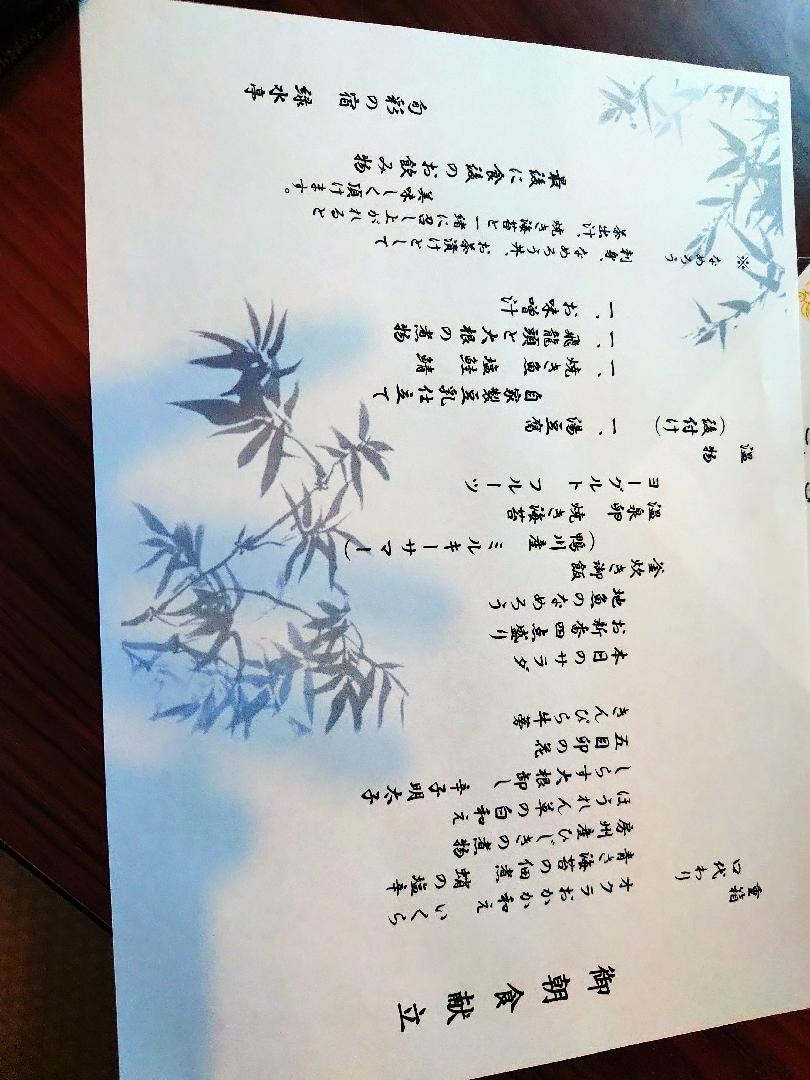 御朝食献立
重詰
口代わり
オクラおかか和え　いくら
青さ海苔の佃煮　蛸の塩辛
房州産ひじきの煮物
ほうれん草の白和え
しらす大根卸し　辛子明太子
五目卯の花
きんぴら牛蒡
本日のサラダ
お新香四点盛り
地魚のなめろう
釜炊き御飯
(鴨川産　ミルキーサマー)
温泉卵　焼き海苔
ヨーグルト　フルーツ
温物
(後付け)　一、湯豆腐
自家製豆乳仕立て
一、焼き魚　塩鮭　鯖
一、飛龍頭と大根の煮物
一、お味噌汁
※なめろう　刺身、なめろう丼、お茶漬けとして
茶出汁、焼き海苔と一緒に召し上がれると
美味しく頂けます。
最後に食後のお飲み物
旬彩の宿　緑水亭